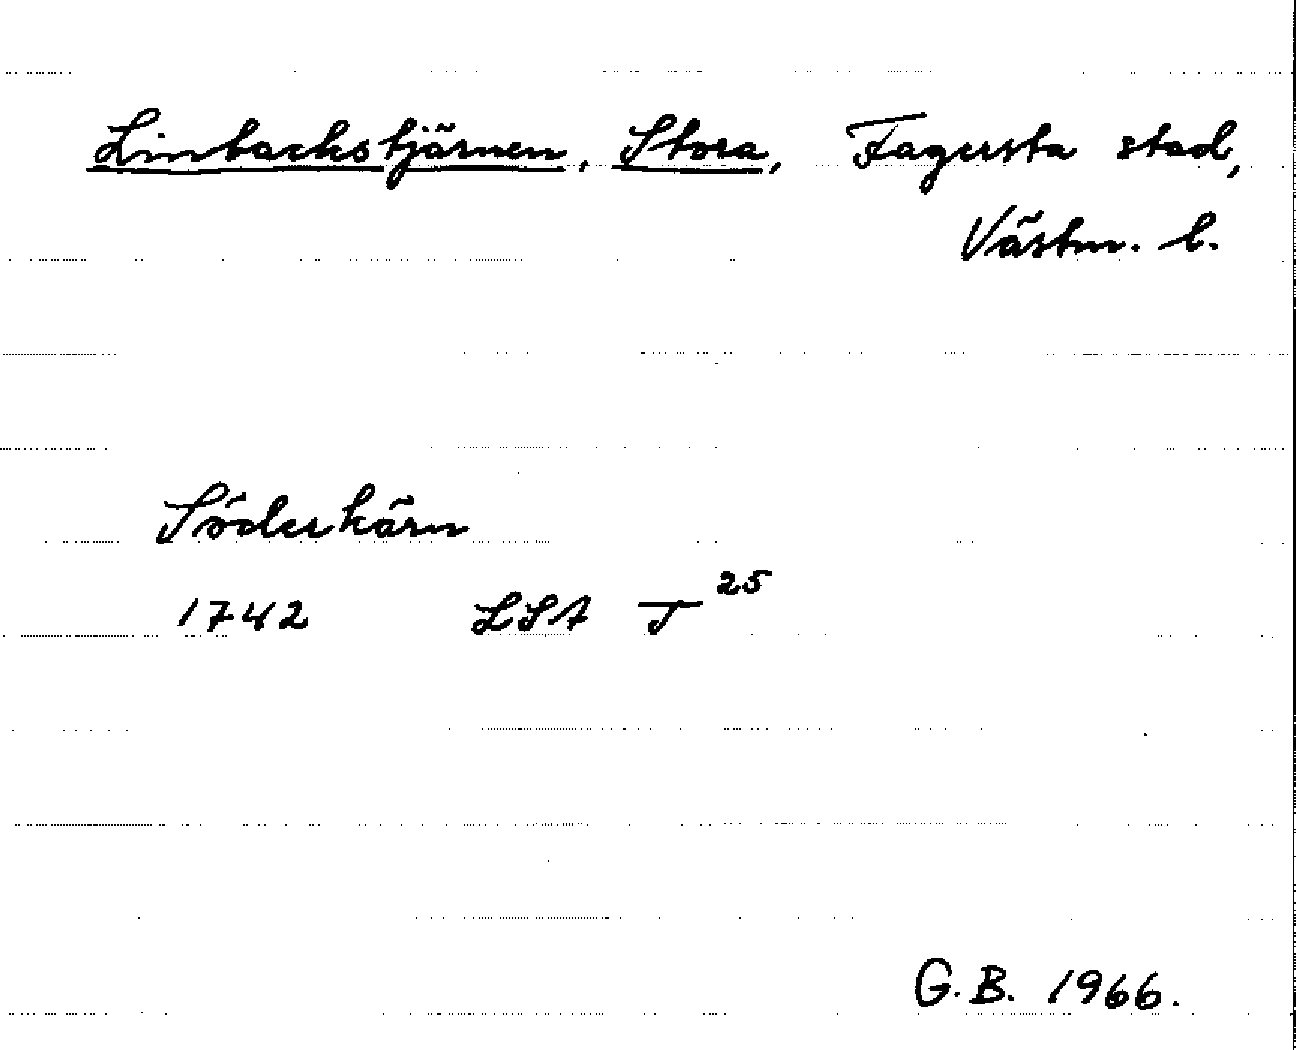 Linbackstjärnen, Stora, Fagersta stad,
Västm. l.
Söderkärn
1742 LSA T 25
G.B. 1966.